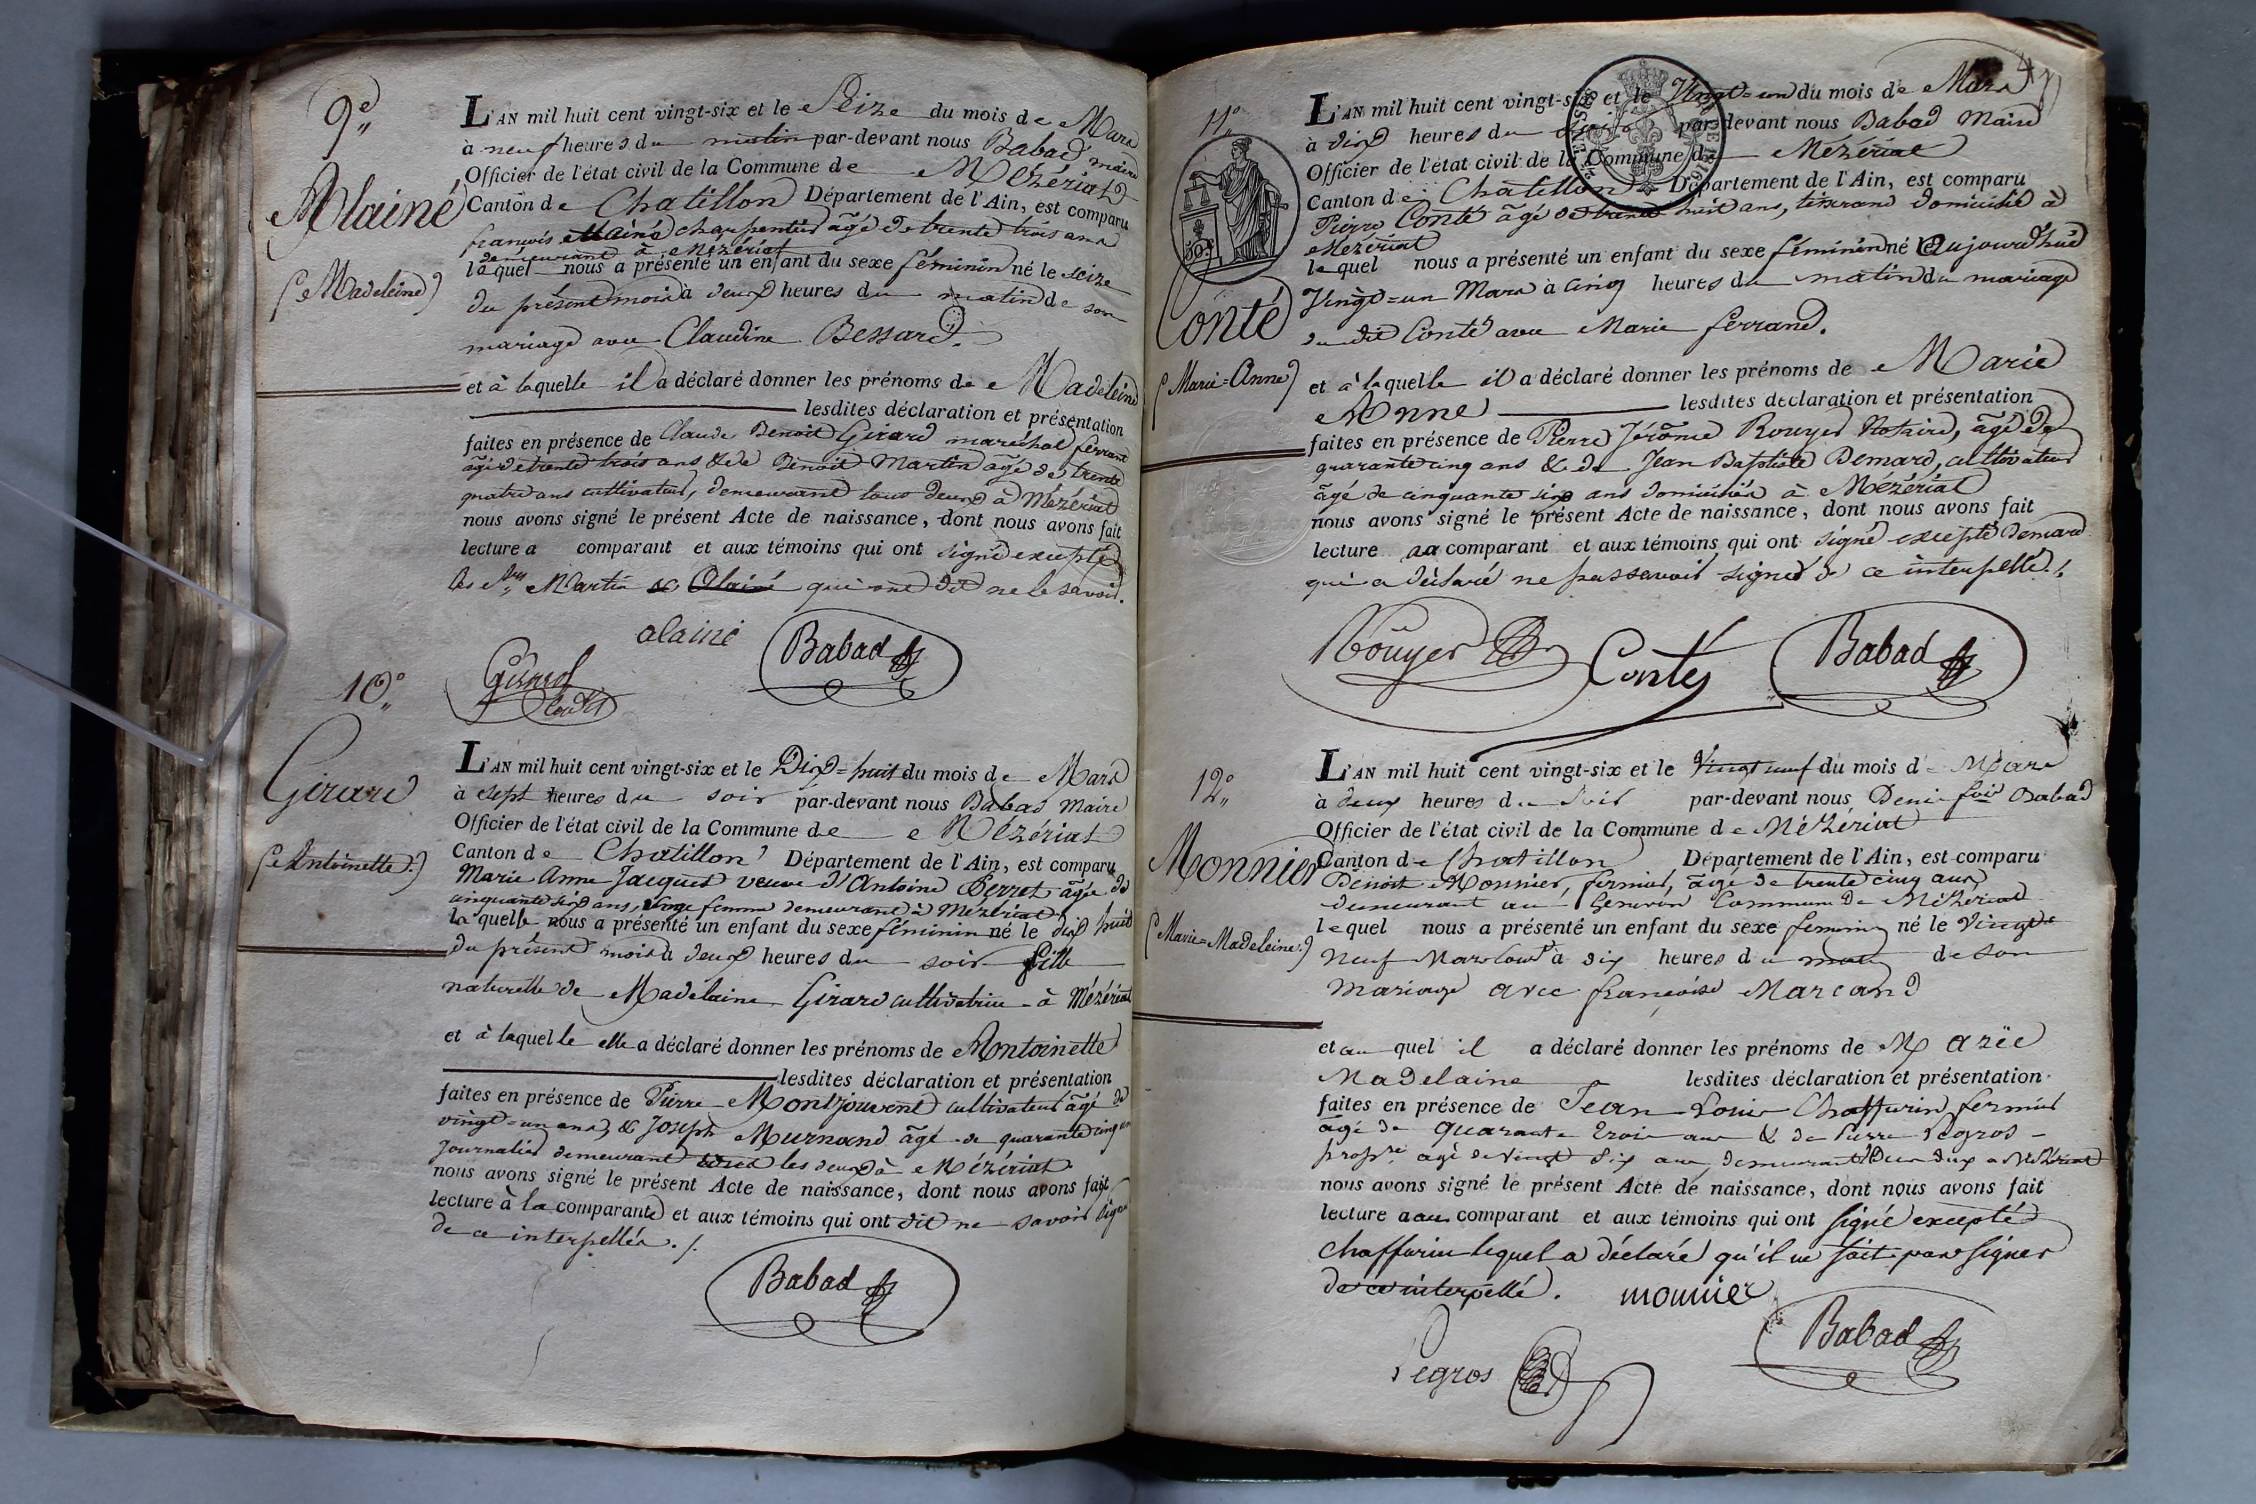 9e
Alainé
(Madeleine)
L'AN mil huit cent vingt-six et le Seize du mois de Mars
à neuf heures du matin par-devant nous Babad maire
Officier de l'état civil de la Commune de Mézériat
Canton de Chatillon Département de l'Ain, est comparu
françois Alainé charpentier âgé de trente trois ans
demeurant à Mézériat
lequel nous a présenté un enfant du sexe féminin né le seize
du présent mois à deux heures du matin de son
mariage avec Claudine Bessard.
et à laquelle il a déclaré donner les prénoms de Madeleine
lesdites déclaration et présentation
faites en présence de Claude Benoit Girard maréchal ferrant
âgé de trente trois ans & de Benoit Martin âgé de trente
quatre ans cultivateur, demeurant tous deux à Mézériat
nous avons signé le présent Acte de naissance, dont nous avons fait
lecture a comparant et aux témoins qui ont signé excepté
les Srs Martin & Alainé qui ont dit ne le savoir.
alainé
Babad
Girard
10°
Girard
(Antoinette.)
L'AN mil huit cent vingt-six et le Dix=huit du mois de Mars
à sept heures du soir par-devant nous Babad maire
Officier de l'état civil de la Commune de Mézériat
Canton de Chatillon Département de l'Ain, est comparu
Marie Anne Jacquet veuve d'Antoine Perret âgée de
cinquante six ans, sage femme demeurant à Mézériat
laquelle nous a présenté un enfant du sexe féminin né le dix huit
du présent mois à deux heures du soir fille
naturelle de Madelaine Girard cultivatrice à Mézériat
et à laquelle elle a déclaré donner les prénoms de Antoinette
lesdites déclaration et présentation
faites en présence de Pierre Montjouvent cultivateur âgé de
vingt=un ans, & Joseph Murnand âgé de quarante cinq ans
journalier demeurant tous les deux à Mézériat
nous avons signé le présent Acte de naissance, dont nous avons fait
lecture à la comparante et aux témoins qui ont dit ne savoir signer
de ce interpellés ./.
Babad
11°
50c
Conté
(Marie=Anne)
L'AN mil huit cent vingt-six et le Vingt=un du mois de Mars
à dix heures du matin par-devant nous Babad Maire
Officier de l'état civil de la Commune de Mézériat
Canton de Chatillon Département de l'Ain, est comparu
Pierre Conté âgé de trente huit ans, tisserand domicilié à
Mézériat
lequel nous a présenté un enfant du sexe féminin né le Aujourd'hui
Vingt=un Mars à cinq heures du matin du mariage
du dit Conté avec Marie ferrand.
et à laquelle il a déclaré donner les prénoms de Marie
Anne lesdites déclaration et présentation
faites en présence de Pierre Jérôme Rouyer Notaire, âgé de
quarante cinq ans & de Jean Baptiste Demard, cultivateur
âgé de cinquante six ans domiciliés à Mézériat
nous avons signé le présent Acte de naissance, dont nous avons fait
lecture au comparant et aux témoins qui ont signé excepté Demard
qui a déclaré ne pas savoir signer de ce interpellé ./.
Rouyer Conté Babad
12°
Monnier
(Marie=Madeleine.)
L'AN mil huit cent vingt-six et le Vingt neuf du mois de Mars
à deux heures du soir par-devant nous Denis fois Babad
Officier de l'état civil de la Commune de Mézériat
Canton de Chatillon Département de l'Ain, est comparu
Benoit Monnier, fermier, âgé de trente cinq ans,
demeurant au Genevin Commune de Mézériat
lequel nous a présenté un enfant du sexe feminin né le Vingt
neuf Mars Court à dix heures du matin de son
mariage avec françoise Marcand
et au quel il a déclaré donner les prénoms de Marie
Madelaine lesdites déclaration et présentation
faites en présence de Jean Louis Chaffurin fermier
âgé de quarante trois ans & de Pierre Degros
propre. âgé de vingt six ans, demeurant tous deux à Mézériat
nous avons signé le présent Acte de naissance, dont nous avons fait
lecture aau comparant et aux témoins qui ont signé excepté
Chaffurin lequel a déclaré qu'il ne sait pas signer
de ce interpellé.
monnier
Babad
Degros